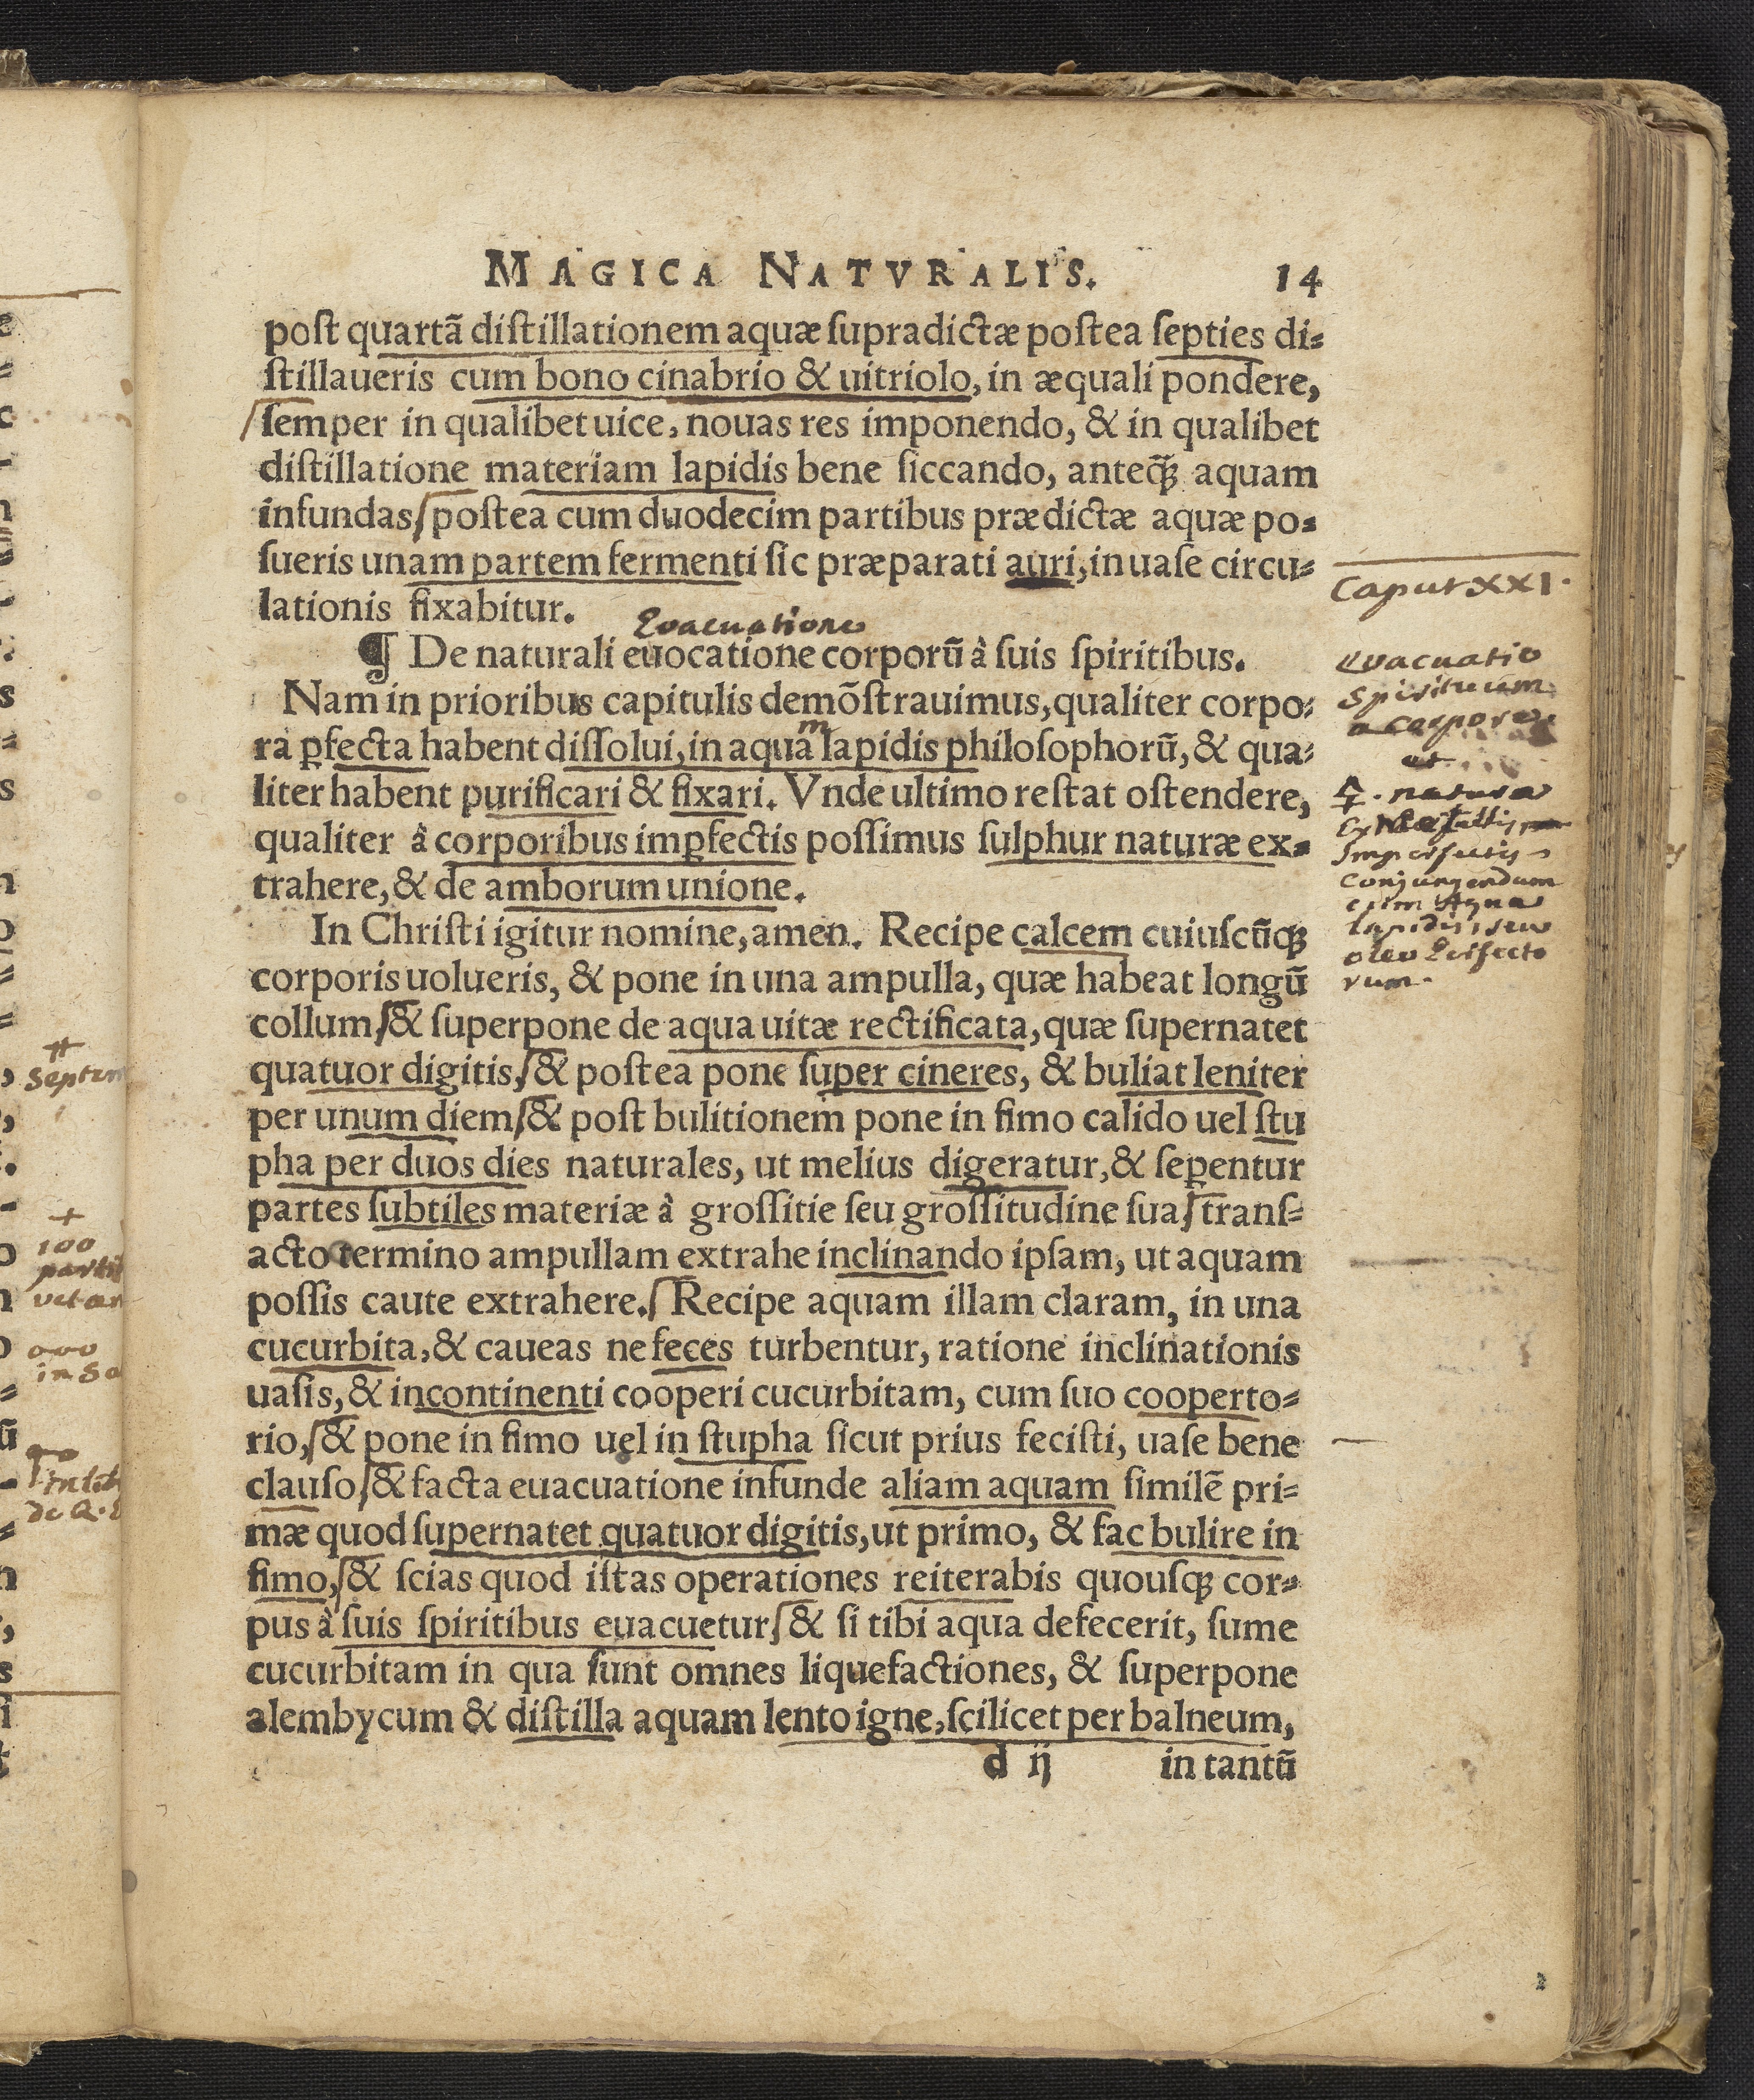 MAGICA NATVRALIS. 14
poſt quartã diſtillationem aquæ ſupradictæ poſtea ſepties di⸗
ſtillaueris cum bono cinabrio & uitriolo, in æquali pondere,
ſemper in qualibet uice, nouas res imponendo, & in qualibet
diſtillatione materiam lapidis bene ſiccando, anteq̃ꝫ aquam
infundas poſtea cum duodecim partibus prædictæ aquæ po⸗
ſueris unam partem fermenti ſic præparati auri, in uaſe circu⸗
lationis fixabitur.
Evacuatione
¶ De naturali euocatione corporũ à ſuis ſpiritibus.
Nam in prioribus capitulis demõſtrauimus, qualiter corpo⸗
m
ra ꝑfecta habent diſſolui, in aqua lapidis philoſophorũ, & qua⸗
liter habent purificari & fixari. Vnde ultimo reſtat oſtendere,
qualiter à corporibus imꝑfectis poſſimus ſulphur naturæ ex⸗
trahere, & de amborum unione.
In Chriſti igitur nomine, amen. Recipe calcem cuiuſcũqꝫ
corporis uolueris, & pone in una ampulla, quæ habeat longũ
collum, & ſuperpone de aqua uitæ rectificata, quæ ſupernatet
quatuor digitis, & poſtea pone ſuper cineres, & buliat leniter
per unum diem, & poſt bulitionem pone in fimo calido uel ſtu
pha per duos dies naturales, ut melius digeratur, & ſeꝑentur
partes ſubtiles materiæ à groſſitie ſeu groſſitudine ſua, tranſ⸗
acto termino ampullam extrahe inclinando ipſam, ut aquam
poſſis caute extrahere. Recipe aquam illam claram, in una
cucurbita, & caueas ne feces turbentur, ratione inclinationis
uaſis, & incontinenti cooperi cucurbitam, cum ſuo cooperto⸗
rio, & pone in fimo uel in ſtupha ſicut prius feciſti, uaſe bene
clauſo, & facta euacuatione infunde aliam aquam ſimilẽ pri⸗
mæ quod ſupernatet quatuor digitis, ut primo, & fac bulire in
fimo, & ſcias quod iſtas operationes reiterabis quouſqꝫ cor⸗
pus à ſuis ſpiritibus euacuetur, & ſi tibi aqua defecerit, ſume
cucurbitam in qua ſunt omnes liquefactiones, & ſuperpone
alembycum & diſtilla aquam lento igne, ſcilicet per balneum,
d ij in tantũ
Caput XXI.
Evacuatio
Spirituum
a corpore
et
🜍. natura
Ex Metallis
Imperfectis
conjungendum
cum Aqua
lapidis, seu
oleo Perfecto
rum.
100